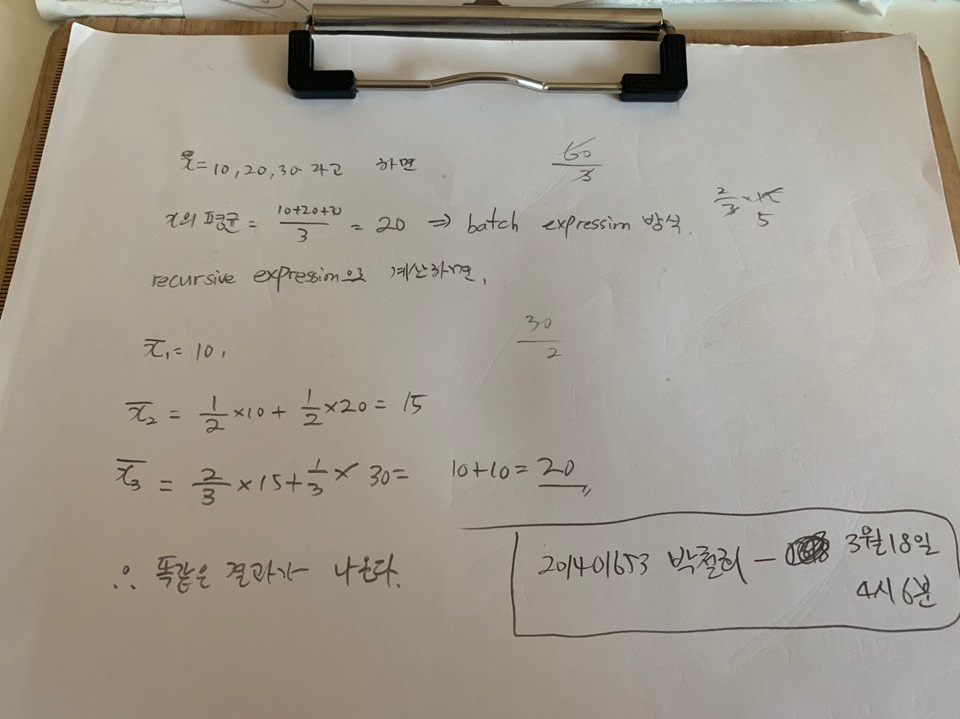 x = 10, 20, 30 라고 하면
60/3
x의 평균 = (10+20+30)/3 = 20 ⇒ batch expression 방식.
2/3 × 15
5
recursive expression으로 계산하면,
30/2
x̄₁ = 10,
x̄₂ = 1/2 × 10 + 1/2 × 20 = 15
x̄₃ = 2/3 × 15 + 1/3 × 30 = 10 + 10 = 20
∴ 똑같은 결과가 나온다.
201401653 박철희 – 3월 18일
4시 6분